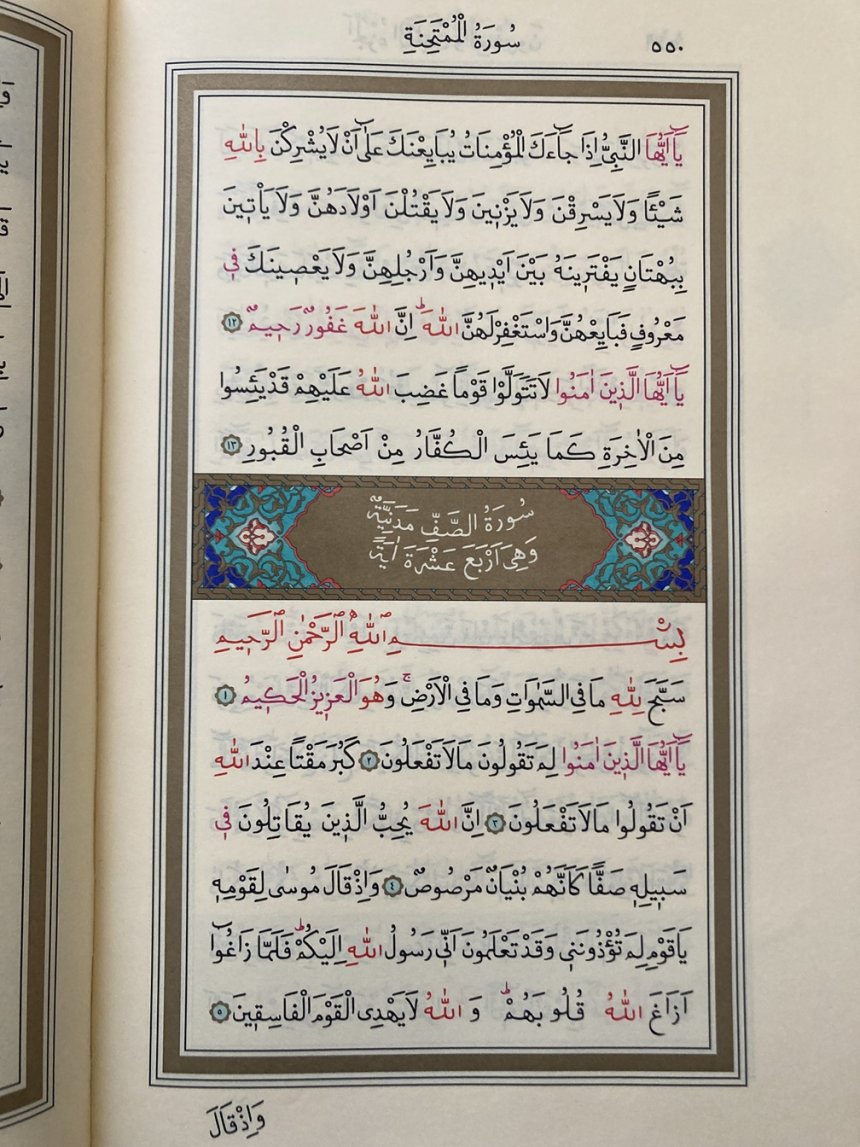 سُورَةُ الْمُمْتَحِنَةِ
٥٥٠
يَٓا اَيُّهَا النَّبِيُّ اِذَا جَٓاءَكَ الْمُؤْمِنَاتُ يُبَايِعْنَكَ عَلٰٓى اَنْ لَا يُشْرِكْنَ بِاللّٰهِ
شَيْـًٔا وَلَا يَسْرِقْنَ وَلَا يَزْنٖينَ وَلَا يَقْتُلْنَ اَوْلَادَهُنَّ وَلَا يَأْتٖينَ
بِبُهْتَانٍ يَفْتَرٖينَهُ بَيْنَ اَيْدٖيهِنَّ وَاَرْجُلِهِنَّ وَلَا يَعْصٖينَكَ فٖي
مَعْرُوفٍ فَبَايِعْهُنَّ وَاسْتَغْفِرْ لَهُنَّ اللّٰهَؕ اِنَّ اللّٰهَ غَفُورٌ رَحٖيمٌ ١٢
يَٓا اَيُّهَا الَّذٖينَ اٰمَنُوا لَا تَتَوَلَّوْا قَوْمًا غَضِبَ اللّٰهُ عَلَيْهِمْ قَدْ يَئِسُوا
مِنَ الْاٰخِرَةِ كَمَا يَئِسَ الْكُفَّارُ مِنْ اَصْحَابِ الْقُبُورِ ١٣
سُورَةُ الصَّفِّ مَدَنِيَّةٌ
وَهِيَ اَرْبَعَ عَشْرَةَ اٰيَةً
بِسْمِ اللّٰهِ الرَّحْمٰنِ الرَّحٖيمِ
سَبَّحَ لِلّٰهِ مَا فِي السَّمٰوَاتِ وَمَا فِي الْاَرْضِۚ وَهُوَ الْعَزٖيزُ الْحَكٖيمُ ١
يَٓا اَيُّهَا الَّذٖينَ اٰمَنُوا لِمَ تَقُولُونَ مَا لَا تَفْعَلُونَ ٢ كَبُرَ مَقْتًا عِنْدَ اللّٰهِ
اَنْ تَقُولُوا مَا لَا تَفْعَلُونَ ٣ اِنَّ اللّٰهَ يُحِبُّ الَّذٖينَ يُقَاتِلُونَ فٖي
سَبٖيلِهٖ صَفًّا كَاَنَّهُمْ بُنْيَانٌ مَرْصُوصٌ ٤ وَاِذْ قَالَ مُوسٰى لِقَوْمِهٖ
يَا قَوْمِ لِمَ تُؤْذُونَنٖي وَقَدْ تَعْلَمُونَ اَنّٖي رَسُولُ اللّٰهِ اِلَيْكُمْؕ فَلَمَّا زَاغُٓوا
اَزَاغَ اللّٰهُ قُلُوبَهُمْؕ وَاللّٰهُ لَا يَهْدِي الْقَوْمَ الْفَاسِقٖينَ ٥
وَاِذْ قَالَ